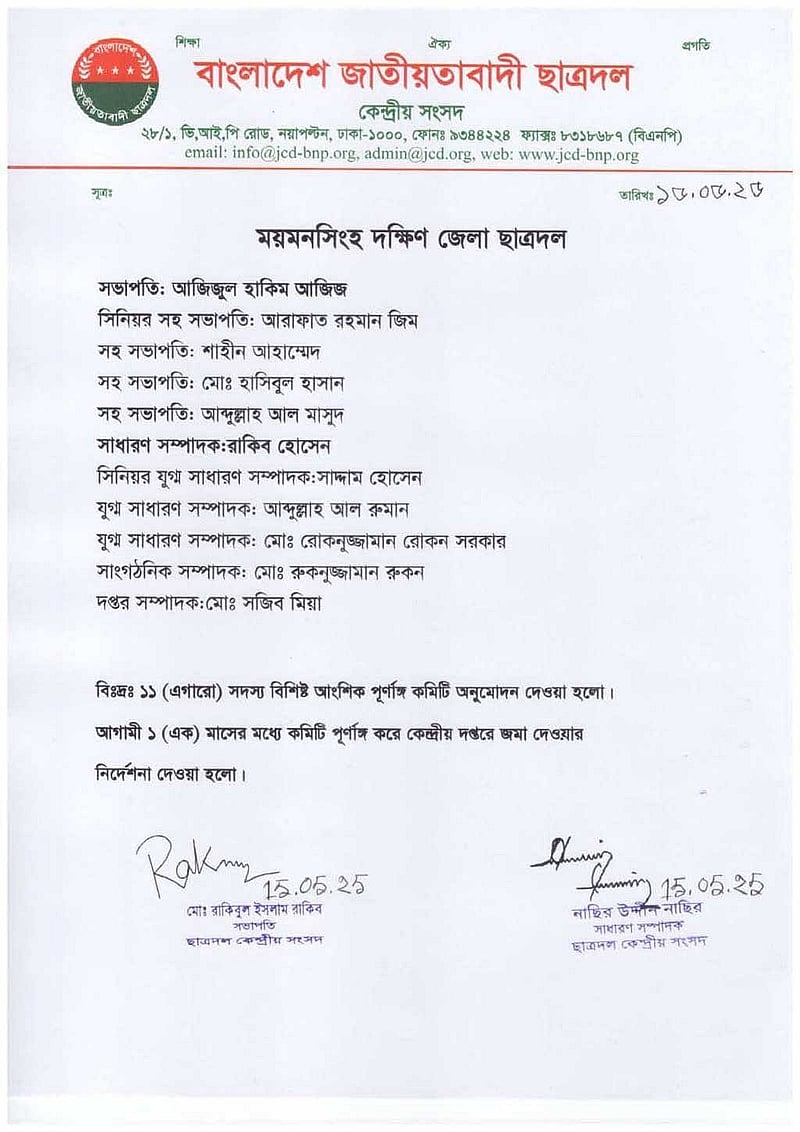 শিক্ষা ঐক্য প্রগতি
বাংলাদেশ
জাতীয়তাবাদী ছাত্রদল
বাংলাদেশ জাতীয়তাবাদী ছাত্রদল
কেন্দ্রীয় সংসদ
২৮/১, ভি,আই,পি রোড, নয়াপল্টন, ঢাকা-১০০০, ফোনঃ ৯৩৪৪২২৪ ফ্যাক্সঃ ৮৩১৮৬৮৭ (বিএনপি)
email: info@jcd-bnp.org, admin@jcd.org, web: www.jcd-bnp.org
সূত্রঃ তারিখঃ ১৫.০৫.২৫
ময়মনসিংহ দক্ষিণ জেলা ছাত্রদল
সভাপতি: আজিজুল হাকিম আজিজ
সিনিয়র সহ সভাপতি: আরাফাত রহমান জিম
সহ সভাপতি: শাহীন আহাম্মেদ
সহ সভাপতি: মোঃ হাসিবুল হাসান
সহ সভাপতি: আব্দুল্লাহ আল মাসুদ
সাধারণ সম্পাদক:রাকিব হোসেন
সিনিয়র যুগ্ম সাধারণ সম্পাদক:সাদ্দাম হোসেন
যুগ্ম সাধারণ সম্পাদক: আব্দুল্লাহ আল রুমান
যুগ্ম সাধারণ সম্পাদক: মোঃ রোকনুজ্জামান রোকন সরকার
সাংগঠনিক সম্পাদক: মোঃ রুকনুজ্জামান রুকন
দপ্তর সম্পাদক:মোঃ সজিব মিয়া
বিঃদ্রঃ ১১ (এগারো) সদস্য বিশিষ্ট আংশিক পূর্ণাঙ্গ কমিটি অনুমোদন দেওয়া হলো।
আগামী ১ (এক) মাসের মধ্যে কমিটি পূর্ণাঙ্গ করে কেন্দ্রীয় দপ্তরে জমা দেওয়ার
নির্দেশনা দেওয়া হলো।
15.05.25
মোঃ রাকিবুল ইসলাম রাকিব
সভাপতি
ছাত্রদল কেন্দ্রীয় সংসদ
15.05.25
নাছির উদ্দীন নাছির
সাধারণ সম্পাদক
ছাত্রদল কেন্দ্রীয় সংসদ